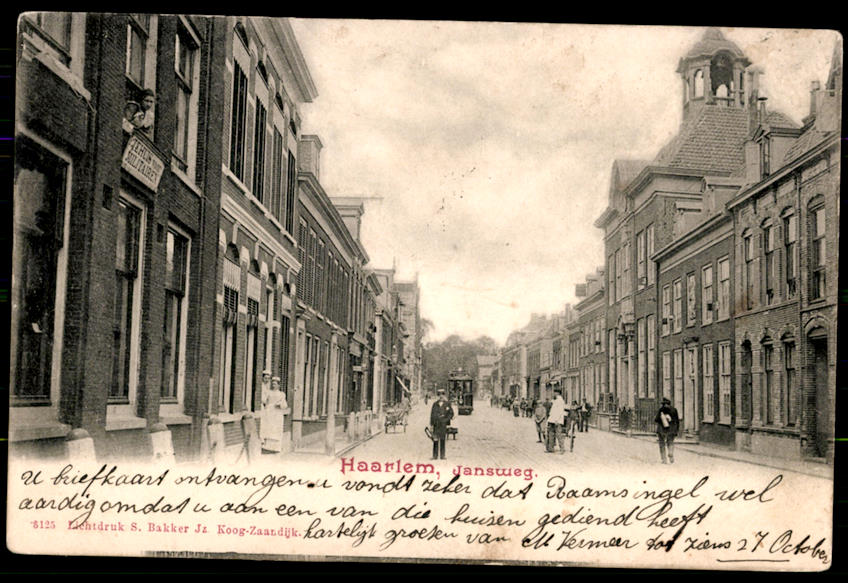 TEHUIS VOOR
MILITAIREN
Haarlem, Jansweg.
u briefkaart ontvangen u vondt zeker dat Raamsingel wel
aardig omdat u aan een van die huisen gediend heeft
6125 Lichtdruk S. Bakker Jz. Koog-Zaandijk.
hartelijk groeten van M Vermeer tot ziens 27 October